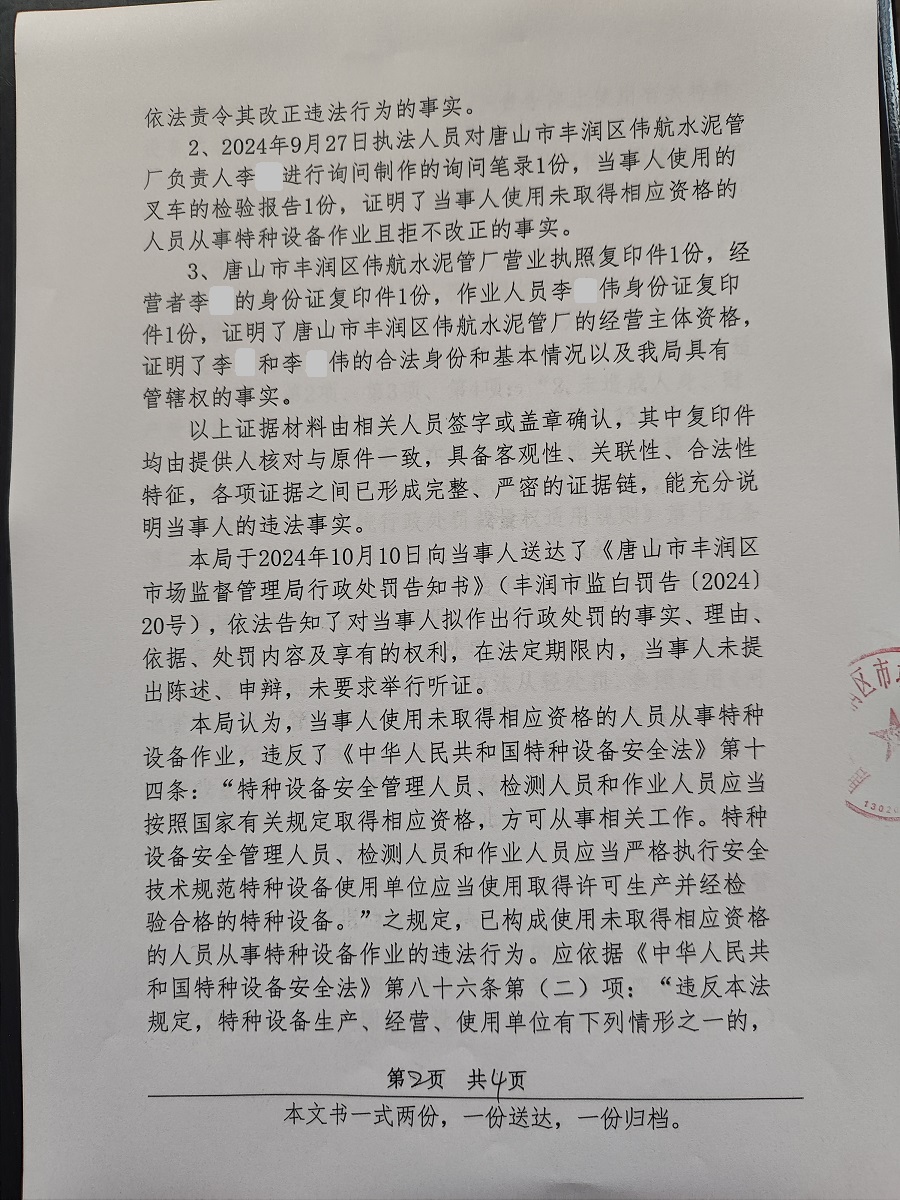 依法责令其改正违法行为的事实。
2、2024年9月27日执法人员对唐山市丰润区伟航水泥管
厂负责人李 进行询问制作的询问笔录1份，当事人使用的
叉车的检验报告1份，证明了当事人使用未取得相应资格的
人员从事特种设备作业且拒不改正的事实。
3、唐山市丰润区伟航水泥管厂营业执照复印件1份，经
营者李 的身份证复印件1份，作业人员李 伟身份证复印
件1份，证明了唐山市丰润区伟航水泥管厂的经营主体资格，
证明了李 和李 伟的合法身份和基本情况以及我局具有
管辖权的事实。
以上证据材料由相关人员签字或盖章确认，其中复印件
均由提供人核对与原件一致，具备客观性、关联性、合法性
特征，各项证据之间已形成完整、严密的证据链，能充分说
明当事人的违法事实。
本局于2024年10月10日向当事人送达了《唐山市丰润区
市场监督管理局行政处罚告知书》（丰润市监白罚告〔2024〕
20号），依法告知了对当事人拟作出行政处罚的事实、理由、
依据、处罚内容及享有的权利，在法定期限内，当事人未提
出陈述、申辩，未要求举行听证。
本局认为，当事人使用未取得相应资格的人员从事特种
设备作业，违反了《中华人民共和国特种设备安全法》第十
四条：“特种设备安全管理人员、检测人员和作业人员应当
按照国家有关规定取得相应资格，方可从事相关工作。特种
设备安全管理人员、检测人员和作业人员应当严格执行安全
技术规范特种设备使用单位应当使用取得许可生产并经检
验合格的特种设备。”之规定，已构成使用未取得相应资格
的人员从事特种设备作业的违法行为。应依据《中华人民共
和国特种设备安全法》第八十六条第（二）项：“违反本法
规定，特种设备生产、经营、使用单位有下列情形之一的，
区市
13020
第2页 共4页
本文书一式两份，一份送达，一份归档。